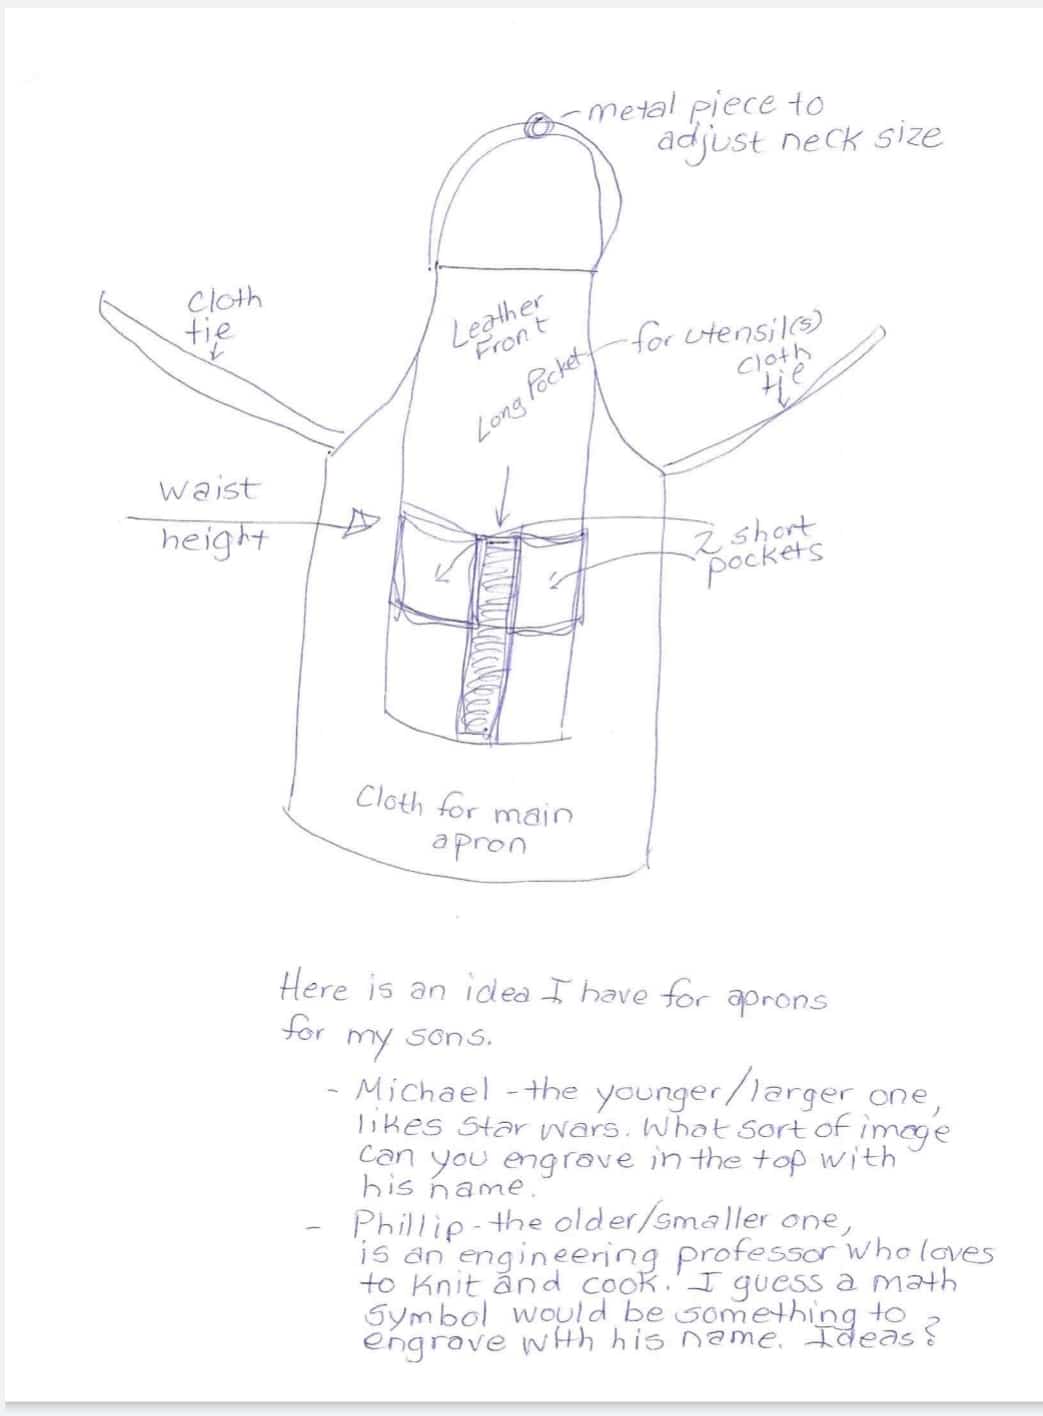 metal piece to
adjust neck size
Cloth
tie
Leather
Front
Long Pocket
for utensil(s)
cloth
tie
waist
height
2 short
pockets
Cloth for main
apron
Here is an idea I have for aprons
for my sons.
- Michael - the younger/larger one,
likes Star Wars. What sort of image
can you engrave in the top with
his name.
- Phillip - the older/smaller one,
is an engineering professor who loves
to knit and cook. I guess a math
symbol would be something to
engrave with his name. Ideas?